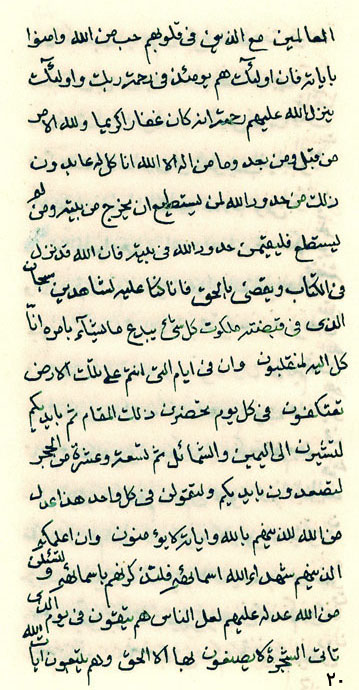 العالمين مع الذينهم في قلوبهم حب من الله وامنوا
باياته فان اولئك هم يومئذ في رحمة ربك واولئك
ينزل الله عليهم رحمة انه كان غفارا كريما ولله الامر
من قبل ومن بعد وما من اله الا الله انا كل له عابدون
ذلك من حدود الله لمن يستطيع ان يخرج من بيته ومن لم
يستطع فليقيمن حدود الله في بيته فان الله قد نزل
في الكتاب ويقضي بالحق فانا كنا عليه لشاهدين سبحان
الذي في قبضته ملكوت كل شيء يبدع ما يشاء بامره انا
كل اليه لمنقلبون وان في ايام التي انتم على تلك الارض
تعتكفون في كل يوم تحضرن ذلك المقام ثم بايديكم
لتشيرن الى اليمين والشمائل ثم تسعة وعشرة من الحجر
لتصعدون بايديكم ولتقولن في كل واحد هذا عدل
من الله للذينهم بالله واياته لا يؤمنون وان اعليكم
الذينهم شهداء الله اسمائهم فلتذكرنهم باسمائهم و لتسئلن
من الله عدله عليهم لعل الناس هم يتقون في يوم الذي
تاتي الشجرة لا يصيفون بها الا الحق وهم يتبعون ايات الله
٢٠